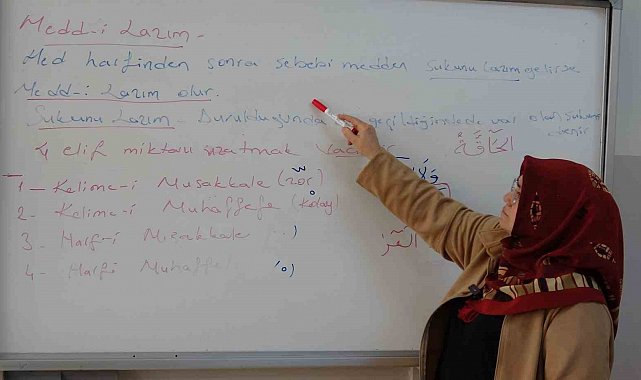 Medd-i Lazım -
Med harfinden sonra sebebi medden Sukunu Lazım gelirse
Medd-i Lazım olur.
Sukunu Lazım - Durulduğunda geçildiğinde de var olan sukuna denir
الحَآقَّةُ
4 elif miktarı uzatmak
1 - Kelime-i Musakkale (zor)
2 - Kelime-i Muhaffefe (kolay)
3 - Harf-i Musakkale
4 - Harf-i